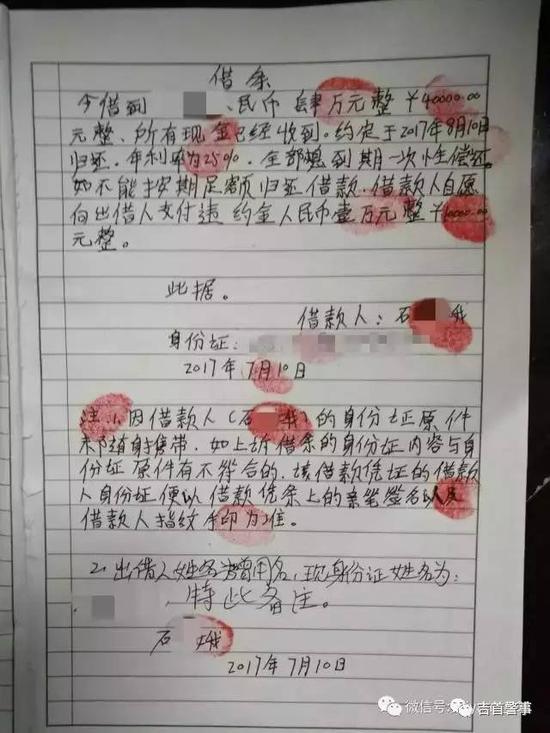 借条
今借到 民币 肆万元整 ￥40000.00
元整、所有现金已经收到。约定于2017年9月10日
归还. 年利率为25%. 全部 到期一次性偿还.
如不能按期足额归还借款. 借款人自愿
向出借人支付违约金人民币壹万元整￥10000.00
元整。
此据。
借款人：石 娥
身份证：
2017年7月10日
注：1、因借款人(石 娥)的身份证原件
未随身携带. 如上述借条的身份证内容与身
份证原件有不符合的. 该借款凭证的借款
人身份证便以借款凭条上的亲笔签名以及
借款人指纹手印为准。
2. 出借人姓名为曾用名, 现身份证姓名为:
特此备注。
石 娥
2017年7月10日
微信号: 吉首警事